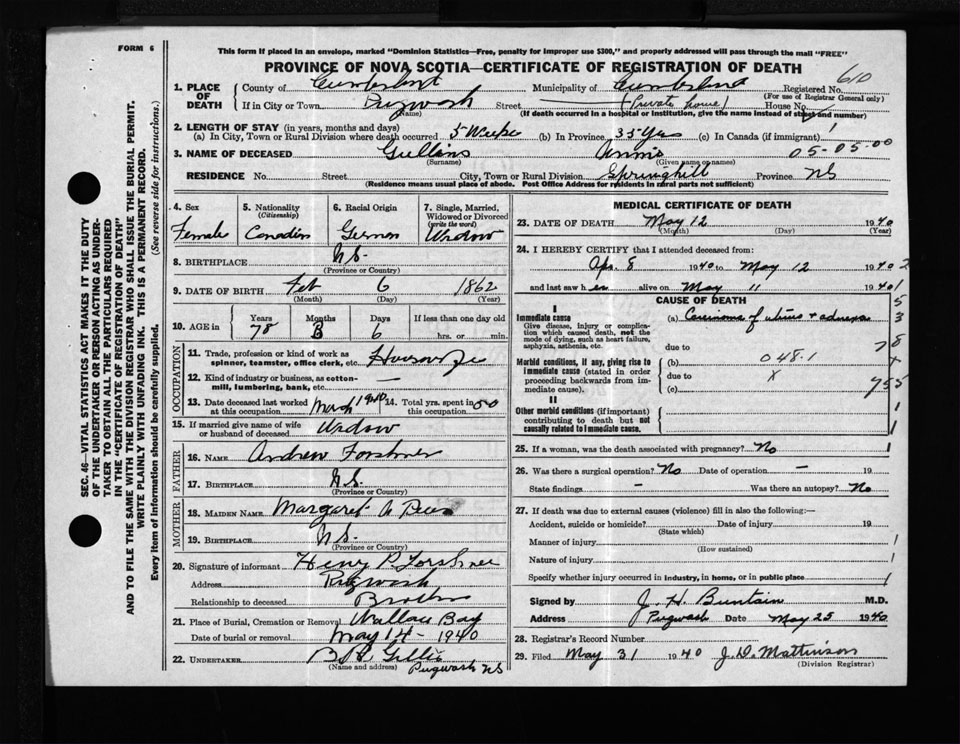 FORM 6
This form if placed in an envelope, marked "Dominion Statistics—Free, penalty for improper use $300," and properly addressed will pass through the mail "FREE"
PROVINCE OF NOVA SCOTIA—CERTIFICATE OF REGISTRATION OF DEATH
610
SEC. 46—VITAL STATISTICS ACT MAKES IT THE DUTY
OF THE UNDERTAKER OR PERSON ACTING AS UNDER-
TAKER TO OBTAIN ALL THE PARTICULARS REQUIRED
IN THE "CERTIFICATE OF REGISTRATION OF DEATH"
AND TO FILE THE SAME WITH THE DIVISION REGISTRAR WHO SHALL ISSUE THE BURIAL PERMIT.
WRITE PLAINLY WITH UNFADING INK. THIS IS A PERMANENT RECORD.
Every item of information should be carefully supplied. (See reverse side for instructions.)
1. PLACE OF DEATH County of Cumberland Municipality of Cumberland Registered No.
(For use of Registrar General only)
If in City or Town Pugwash Street (Private home) House No.
(Name) (If death occurred in a hospital or institution, give the name instead of street and number)
2. LENGTH OF STAY (in years, months and days)
(a) In City, Town or Rural Division where death occurred 5 Weeks (b) In Province 35 Yrs (c) In Canada (if immigrant)
3. NAME OF DECEASED Annie 05-05-00
(Surname) (Given name or names)
RESIDENCE No. Street City, Town or Rural Division Springhill Province NS
(Residence means usual place of abode. Post Office Address for residents in rural parts not sufficient)
4. Sex Female
5. Nationality (Citizenship) Canadian
6. Racial Origin German
7. Single, Married, Widowed or Divorced (write the word) Widow
8. BIRTHPLACE N.S.
(Province or Country)
9. DATE OF BIRTH Feb 6 1862
(Month) (Day) (Year)
10. AGE in Years 78 Months 3 Days 6 If less than one day old hrs. or min.
OCCUPATION
11. Trade, profession or kind of work as spinner, teamster, office clerk, etc. Housewife
12. Kind of industry or business, as cotton-mill, lumbering, bank, etc. —
13. Date deceased last worked at this occupation March 1940 14. Total yrs. spent in this occupation 50
15. If married give name of wife or husband of deceased Widow
FATHER
16. NAME Andrew Forshner
17. BIRTHPLACE N.S.
(Province or Country)
MOTHER
18. MAIDEN NAME Margaret A
19. BIRTHPLACE N.S.
(Province or Country)
20. Signature of informant Henry P. Forshner
Address Pugwash
Relationship to deceased Brother
21. Place of Burial, Cremation or Removal Wallace Bay
Date of burial or removal May 14 - 1940
22. UNDERTAKER Gillis
(Name and address) Pugwash NS
MEDICAL CERTIFICATE OF DEATH
23. DATE OF DEATH May 12 1940
(Month) (Day) (Year)
24. I HEREBY CERTIFY that I attended deceased from:
Apr. 8 1940 to May 12 1940
and last saw her alive on May 11 1940
CAUSE OF DEATH
I
Immediate cause (a) Carcinoma of uterus + adnexa
Give disease, injury or complication which caused death, not the mode of dying, such as heart failure, asphyxia, asthenia, etc.
due to
Morbid conditions, if any, giving rise to immediate cause (stated in order proceeding backwards from immediate cause).
(b) 048.1
due to X
(c) 755
II
Other morbid conditions (if important) contributing to death but not causally related to immediate cause.
25. If a woman, was the death associated with pregnancy? No
26. Was there a surgical operation? No Date of operation — 19
State findings — Was there an autopsy? No
27. If death was due to external causes (violence) fill in also the following:—
Accident, suicide or homicide? Date of injury 19
(State which)
Manner of injury
(How sustained)
Nature of injury
Specify whether injury occurred in industry, in home, or in public place
Signed by J. H. Buntain M.D.
Address Pugwash Date May 25 1940
28. Registrar's Record Number
29. Filed May 31 1940 J. D. Mattinson
(Division Registrar)